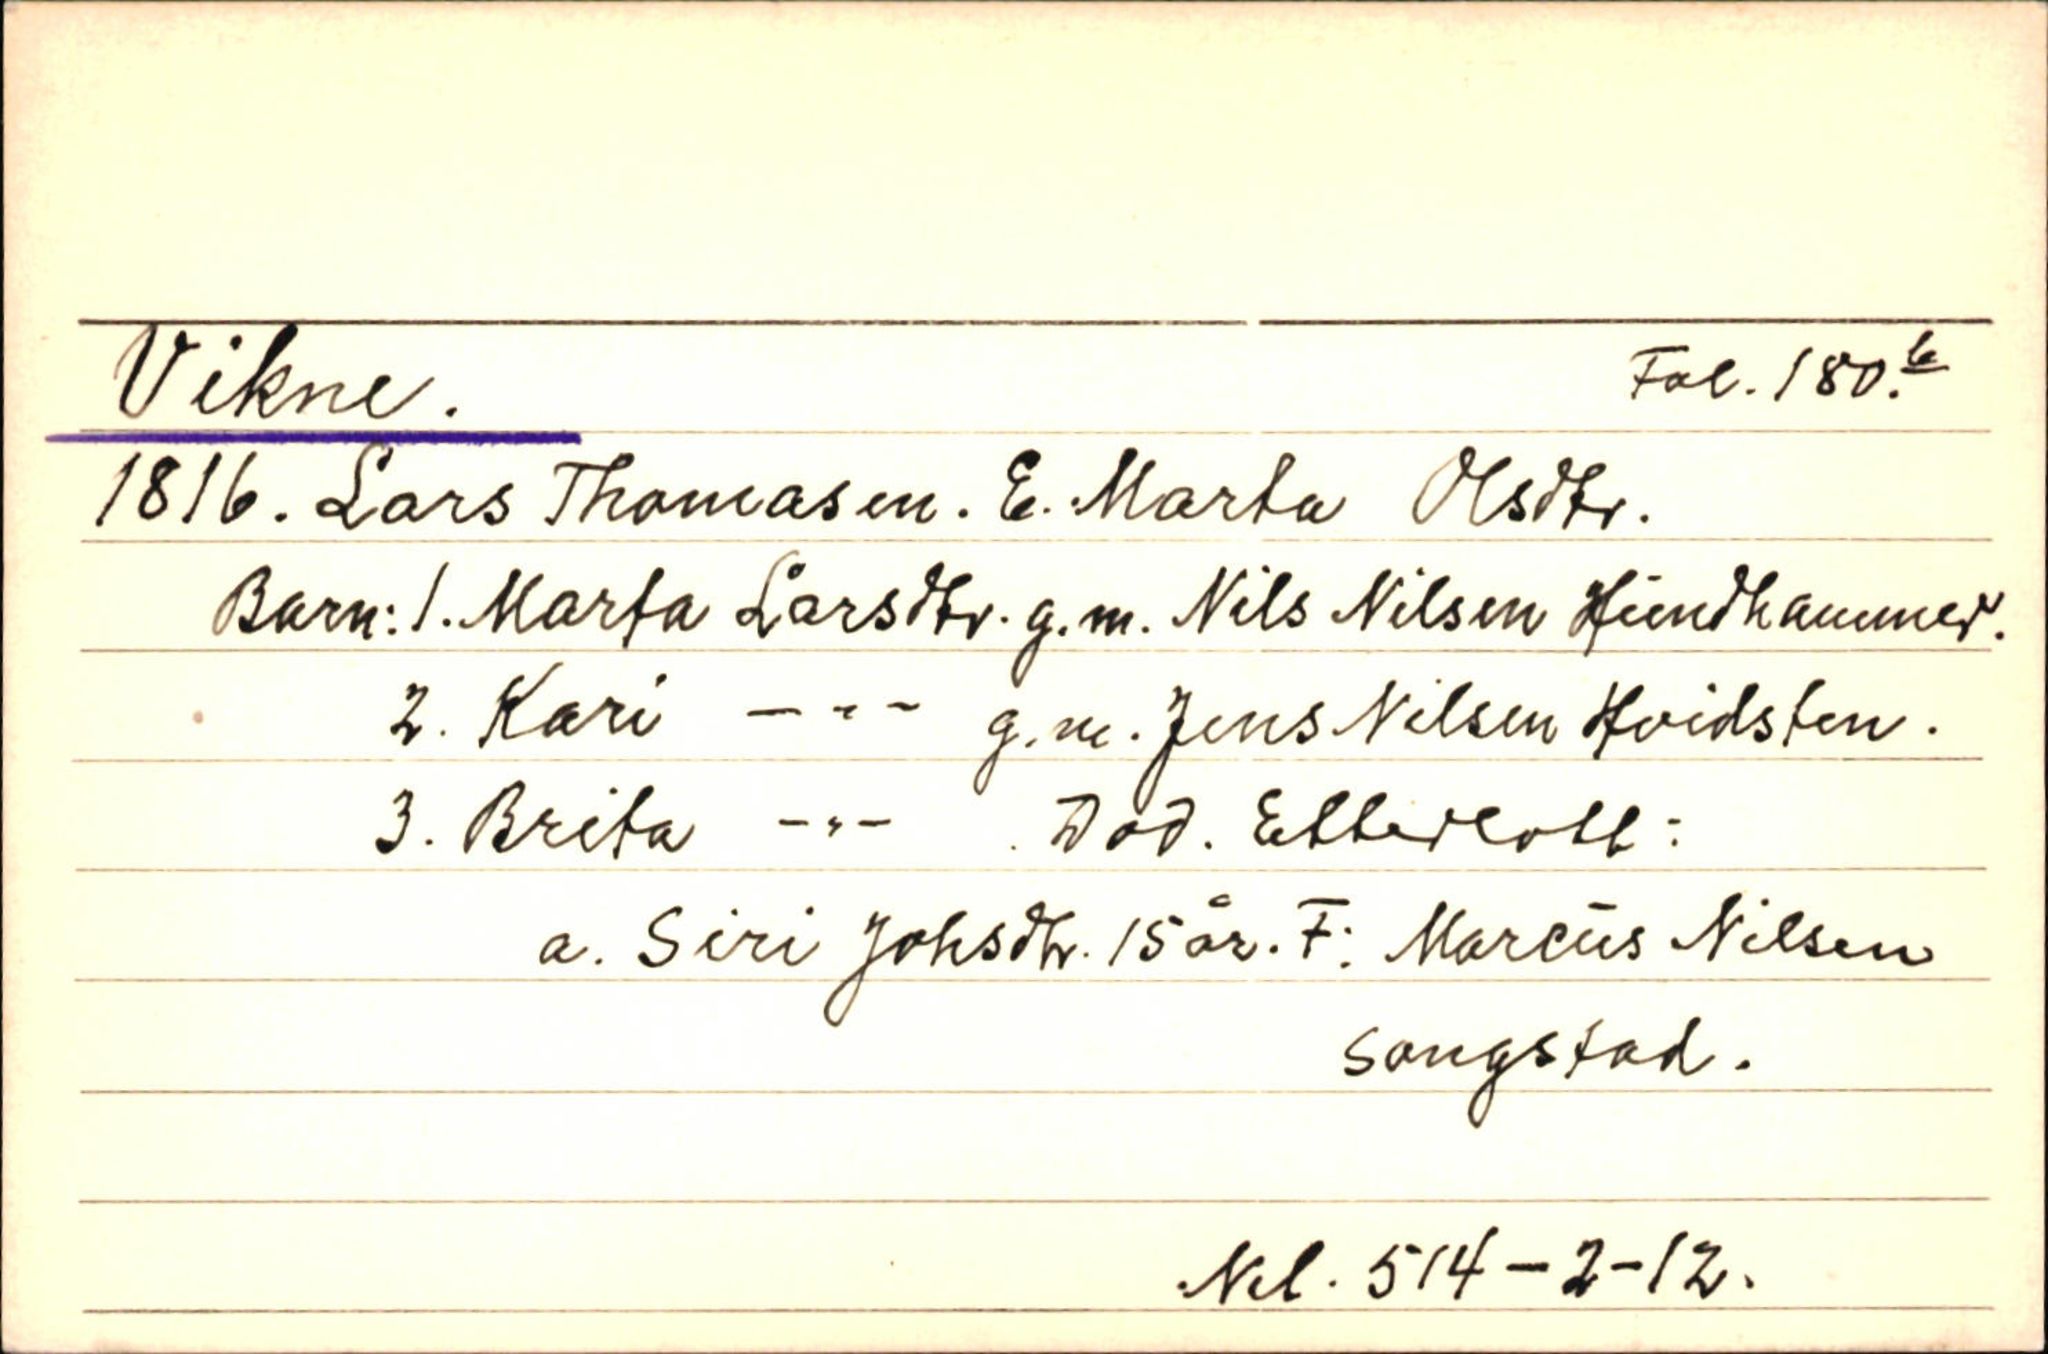 Vikne. Fol. 180.b
1816. Lars Thomasen. E. Marta Olsdtr.
Barn: 1. Marta Larsdtr. g.m. Nils Nilsen Hundhammer.
2. Kari -"- g.m. Jens Nilsen Hvidsten.
3. Brita -"- Død. Etterlott:
a. Siri Johsdtr. 15 år. F: Marcus Nilsen
Songstad.
Nl. 514-2-12.